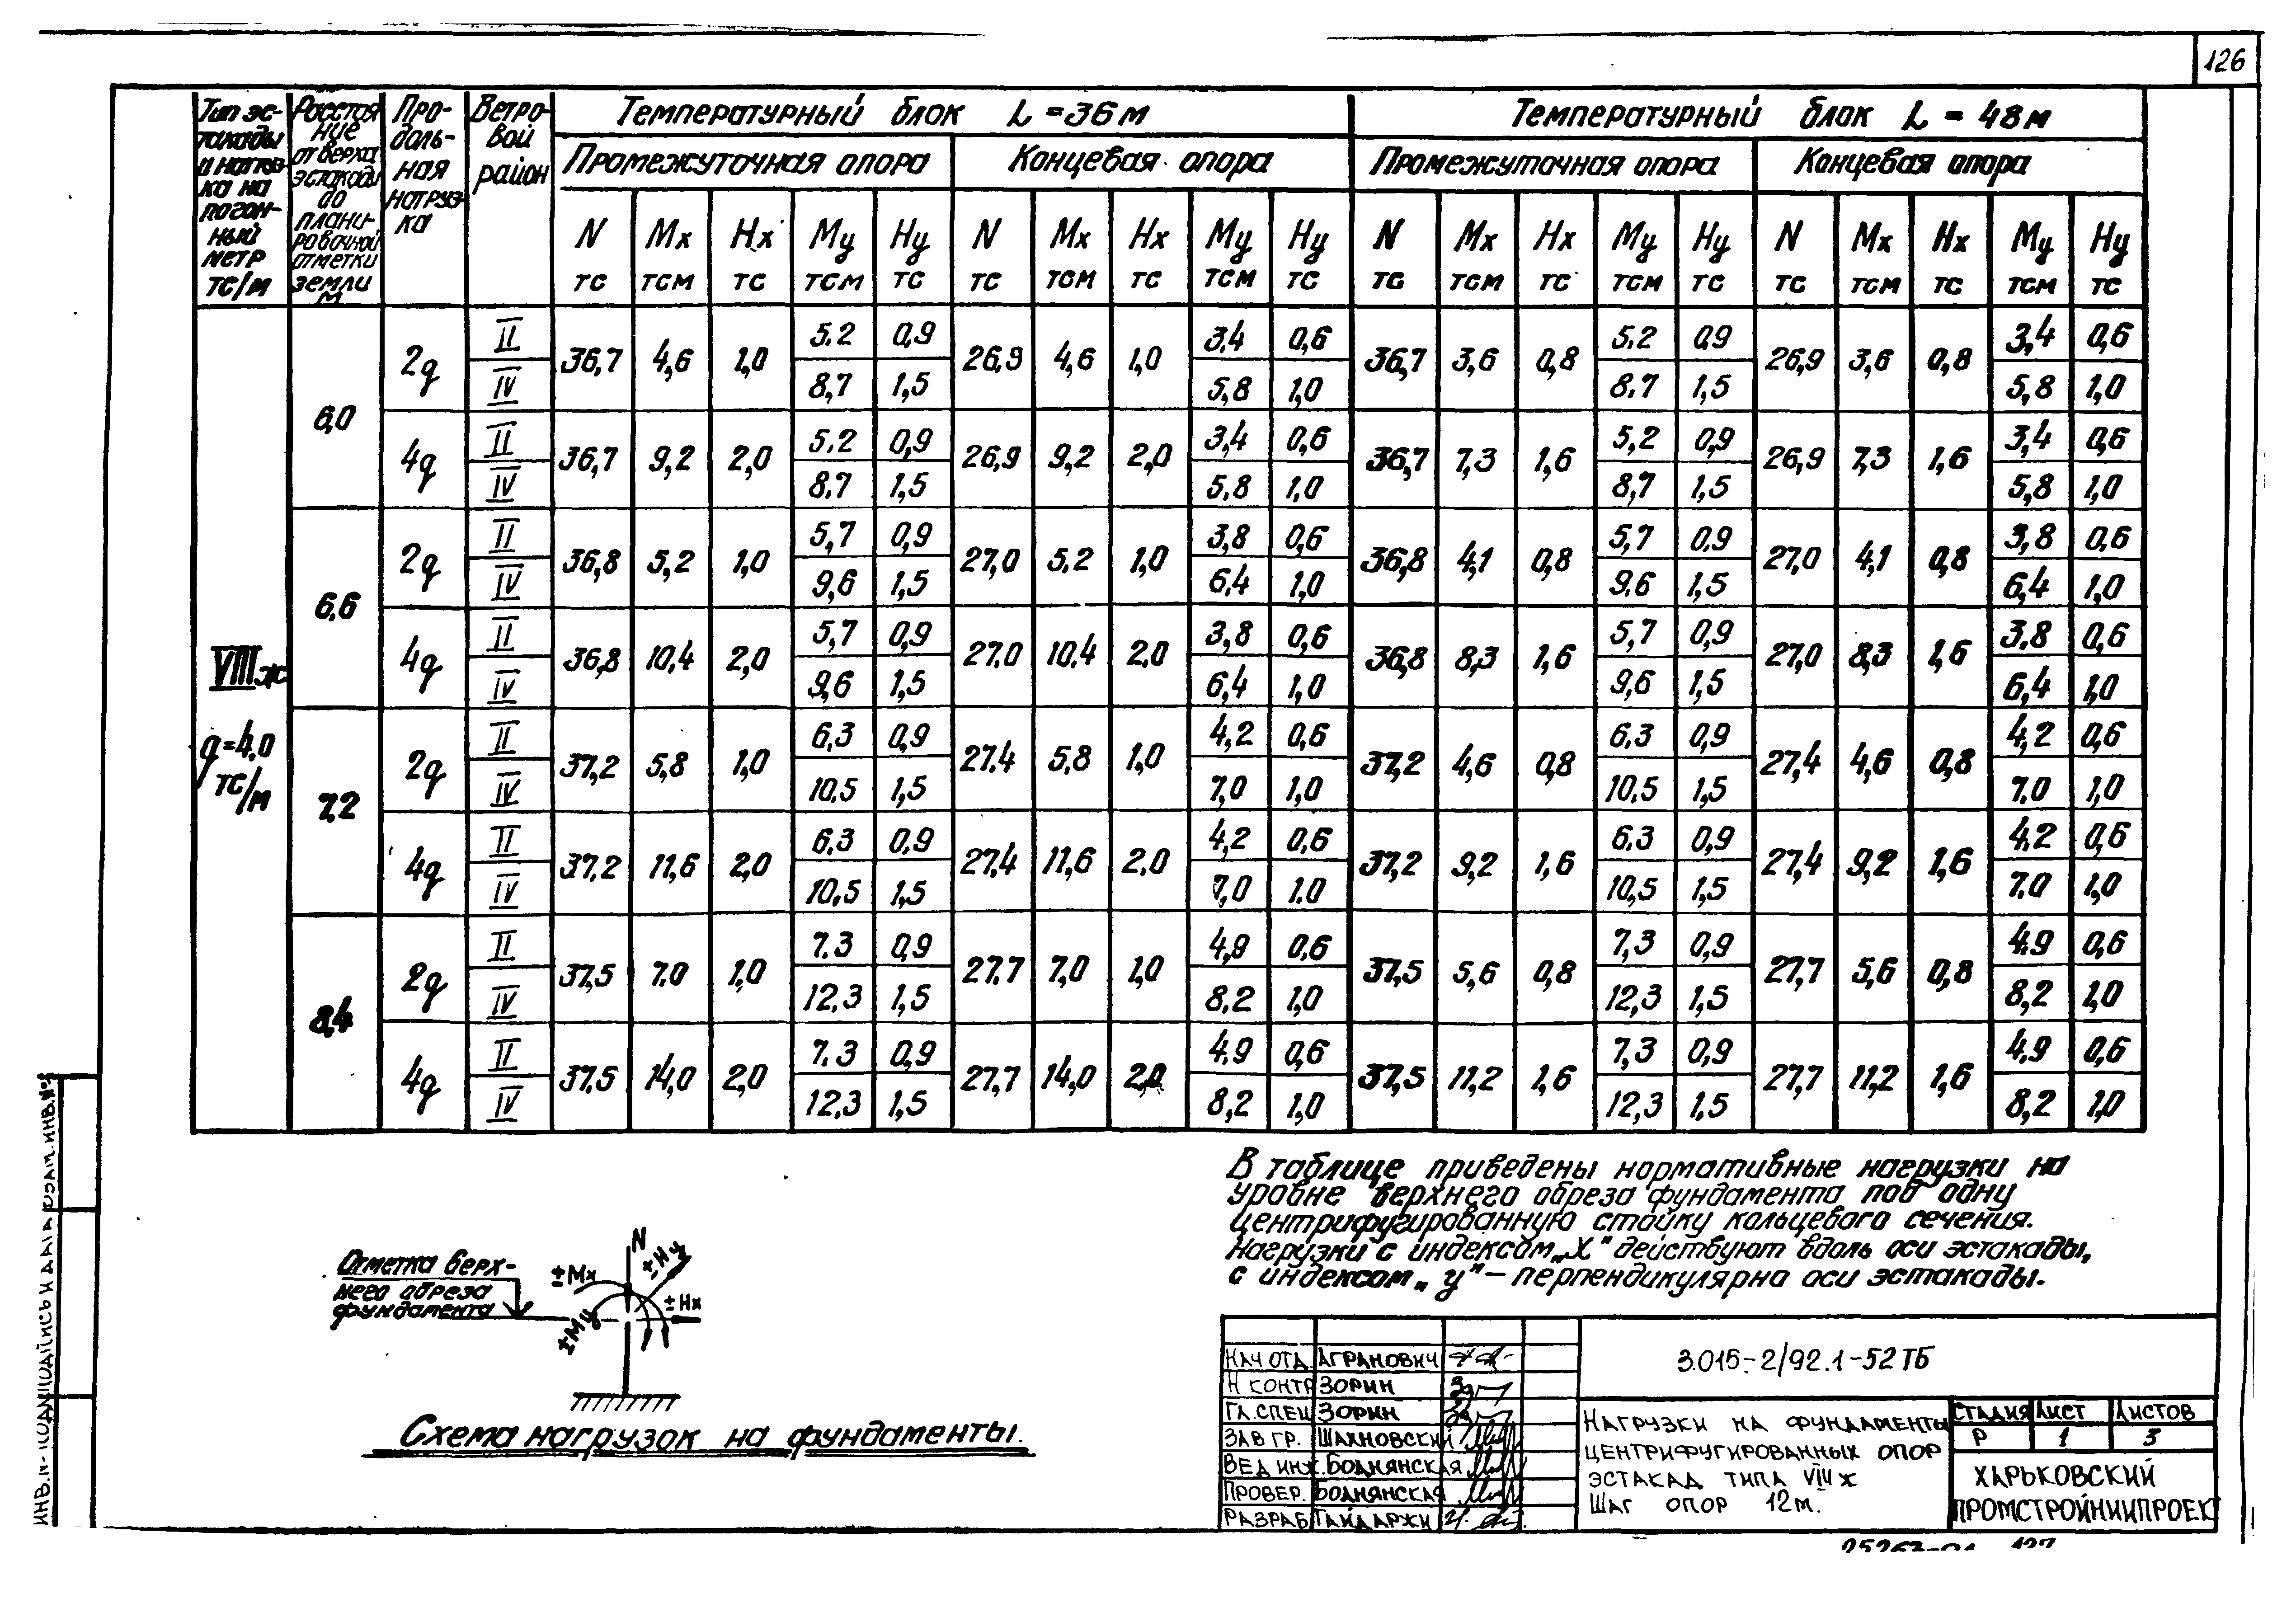 126
Тип эстакады и нагрузка на погонный метр тс/м | Расстояние от верха эстакады до планировочной отметки земли м | Продольная нагрузка | Ветровой район | Температурный блок L = 36 м | Температурный блок L = 48 м
Промежуточная опора | Концевая опора | Промежуточная опора | Концевая опора
N | Мх | Нх | Му | Ну | N | Мх | Нх | Му | Ну | N | Мх | Нх | Му | Ну | N | Мх | Нх | Му | Ну
тс | тсм | тс | тсм | тс | тс | тсм | тс | тсм | тс | тс | тсм | тс | тсм | тс | тс | тсм | тс | тсм | тс
VIIIж
q=4,0
тс/м
6,0 | 2q | II | 36,7 | 4,6 | 1,0 | 5.2 | 0,9 | 26,9 | 4,6 | 1,0 | 3,4 | 0,6 | 36,7 | 3,6 | 0,8 | 5.2 | 0,9 | 26,9 | 3,6 | 0,8 | 3,4 | 0,6
IV | 8,7 | 1,5 | 5,8 | 1,0 | 8.7 | 1,5 | 5,8 | 1,0
4q | II | 36,7 | 9,2 | 2,0 | 5.2 | 0,9 | 26,9 | 9,2 | 2,0 | 3,4 | 0,6 | 36,7 | 7,3 | 1,6 | 5,2 | 0,9 | 26,9 | 7,3 | 1,6 | 3,4 | 0,6
IV | 8.7 | 1,5 | 5.8 | 1,0 | 8,7 | 1,5 | 5,8 | 1,0
6,6 | 2q | II | 36,8 | 5,2 | 1,0 | 5,7 | 0,9 | 27,0 | 5.2 | 1,0 | 3,8 | 0,6 | 36,8 | 4,1 | 0,8 | 5,7 | 0,9 | 27,0 | 4,1 | 0,8 | 3,8 | 0,6
IV | 9,6 | 1,5 | 6,4 | 1,0 | 9.6 | 1,5 | 6,4 | 1,0
4q | II | 36,8 | 10,4 | 2,0 | 5,7 | 0,9 | 27.0 | 10,4 | 2.0 | 3,8 | 0,6 | 36,8 | 8,3 | 1,6 | 5,7 | 0,9 | 27,0 | 8,3 | 1,6 | 3.8 | 0,6
IV | 9,6 | 1,5 | 6,4 | 1,0 | 9,6 | 1,5 | 6,4 | 1,0
7,2 | 2q | II | 37,2 | 5,8 | 1,0 | 6,3 | 0,9 | 27.4 | 5,8 | 1,0 | 4,2 | 0,6 | 37,2 | 4,6 | 0,8 | 6.3 | 0,9 | 27,4 | 4,6 | 0,8 | 4,2 | 0,6
IV | 10.5 | 1,5 | 7,0 | 1,0 | 10.5 | 1,5 | 7.0 | 1,0
4q | II | 37,2 | 11,6 | 2,0 | 6.3 | 0.9 | 27,4 | 11,6 | 2.0 | 4,2 | 0,6 | 37,2 | 9,2 | 1,6 | 6.3 | 0,9 | 27,4 | 9,2 | 1,6 | 4,2 | 0,6
IV | 10,5 | 1,5 | 7,0 | 1.0 | 10,5 | 1,5 | 7.0 | 1,0
8,4 | 2q | II | 37,5 | 7.0 | 1,0 | 7.3 | 0,9 | 27.7 | 7,0 | 1,0 | 4,9 | 0,6 | 37,5 | 5,6 | 0,8 | 7,3 | 0,9 | 27,7 | 5,6 | 0,8 | 4.9 | 0,6
IV | 12.3 | 1,5 | 8,2 | 1,0 | 12,3 | 1,5 | 8,2 | 1,0
4q | II | 37,5 | 14,0 | 2,0 | 7.3 | 0,9 | 27,7 | 14,0 | 2,0 | 4.9 | 0,6 | 37,5 | 11,2 | 1,6 | 7,3 | 0,9 | 27,7 | 11,2 | 1,6 | 4,9 | 0,6
IV | 12,3 | 1,5 | 8,2 | 1,0 | 12,3 | 1,5 | 8,2 | 1,0
В таблице приведены нормативные нагрузки на
уровне верхнего обреза фундамента под одну
центрифугированную стойку кольцевого сечения.
Нагрузки с индексом „х" действуют вдоль оси эстакады,
с индексом „у" – перпендикулярна оси эстакады.
Отметка верх-
него обреза
фундамента
N
±Мх
±Ну
±Нх
±Му
Схема нагрузок на фундаменты.
Нач отд. Агранович
Н контр Зорин
Гл. спец Зорин
Зав гр. Шахновский
Вед инж. Боднянская
Провер. Боднянская
Разраб Гайдаржи
3.015-2/92.1-52ТБ
Нагрузки на фундаменты
центрифугированных опор
эстакад типа VIIIж
Шаг опор 12м.
Стадия Лист Листов
Р 1 3
Харьковский
Промстройниипроект